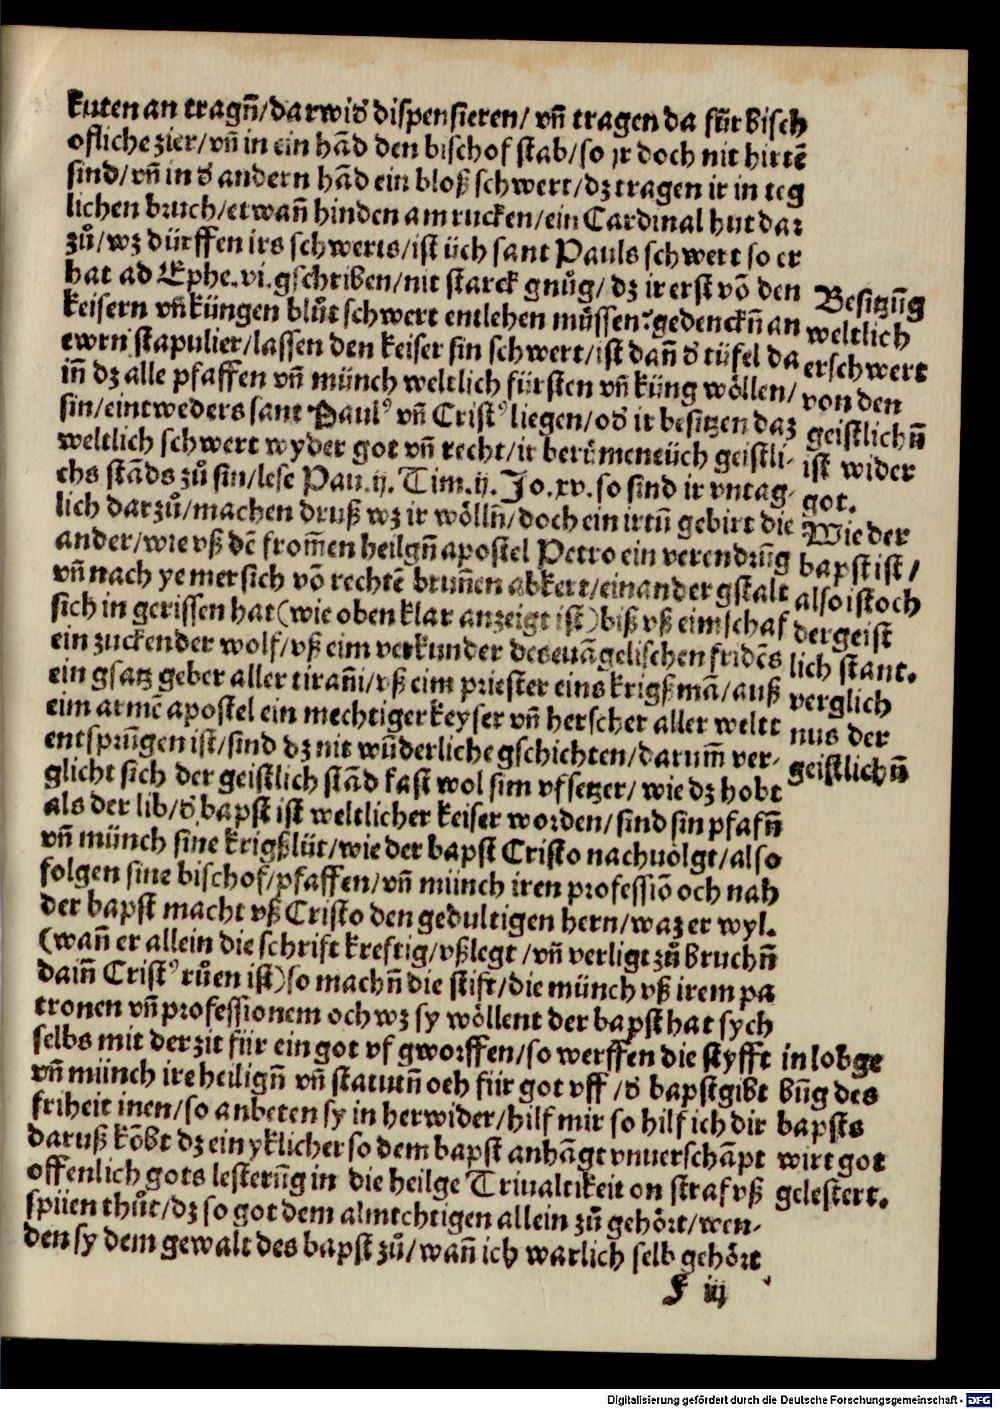 kuten an tragñ/darwid' dispensieren/ vñ tragen da für bisch
ofliche zier/vñ in ein hād den bischof stab/so jr doch nit hirtē
sind/vñ in d' andern hād ein bloß schwert/dz tragen ir in teg
lichen bruch/etwañ hinden am rucken/ein Cardinal hut dar
zů/wz dürffen irs schwerts/ist üch sant Pauls schwert so er
hat ad Ephe.vi.gschriben/nit starck gnůg/dz ir erst vō den
keisern vñ küngen blůt schwert entlehen müssen?gedenckñ an
ewrn stapulier/lassen den keiser sin schwert/ist dañ d' tüfel da
iñ dz alle pfaffen vñ münch weltlich fürsten vñ küng wöllen/
sin/eintweders sant Paulꝰ vñ Cristꝰ liegen/od' ir besitzen daz
weltlich schwert wyder got vñ recht/ir berümen eüch geistli-
chs stāds zů sin/lese Pau.ij.Tim.ij.Jo.xv.so sind ir vntag-
lich darzů/machen druß wz ir wöllñ/doch ein irtū gebirt die
ander/wie vß dē from̃en heilgñ apostel Petro ein verendrūg
vñ nach ye mer sich vō rechtē brun̄en abkert/ein ander gstalt
sich in gerissen hat(wie oben klar anzeigt ist)biß vß eim schaf
ein zuckender wolf/vß eim verkunder des euāgelischen fridēs
ein gsatz geber aller tirañi/vß eim priester eins krigß mā/auß
eim armē apostel ein mechtiger keyser vñ herscher aller welt
entsprūgen ist/sind dz nit wūderliche gschichten/darum̃ ver-
glicht sich der geistlich stād fast wol sim vfsetzer/wie dz hobt
als der lib/d' bapst ist weltlicher keiser worden/sind sin pfafñ
vñ münch sine krigßlüt/wie der bapst Cristo nachuolgt/also
folgen sine bischof/pfaffen/vñ münch iren professiō och nah
der bapst macht vß Cristo den gedultigen hern/waz er wyl.
(wañ er allein die schrift kreftig/vßlegt/vñ verligt zů bruchñ
daiñ Cristꝰ růen ist)so machñ die stift/die münch vß irem pa
tronen vñ professionem och wz sy wöllent der bapst hat sych
selbs mit der zit für ein got vf gworffen/so werffen die styfft
vñ münch ire heiligñ vñ statutñ och für got vff/d' bapst gibt
friheit inen/so anbeten sy in herwider/hilf mir so hilf ich dir
daruß kōbt dz ein yklicher so dem bapst anhāgt vnuerschāpt
offenlich gots lesterūg in die heilge Triualtikeit on straf vß
spüen thůt/dz so got dem almechtigen allein zů gehört/wen-
den sy dem gewalt des bapst zů/wañ ich warlich selb gehört
f iij
Besitzūg
weltlich
er schwert
von den
geistlichñ
ist wider
got.
Wie der
bapst ist/
also ist och
der geist
lich stant.
verglich
nus der
geistlichñ
in lobge
būg des
bapsts
wirt got
gelestert.
Digitalisierung gefördert durch die Deutsche Forschungsgemeinschaft - DFG